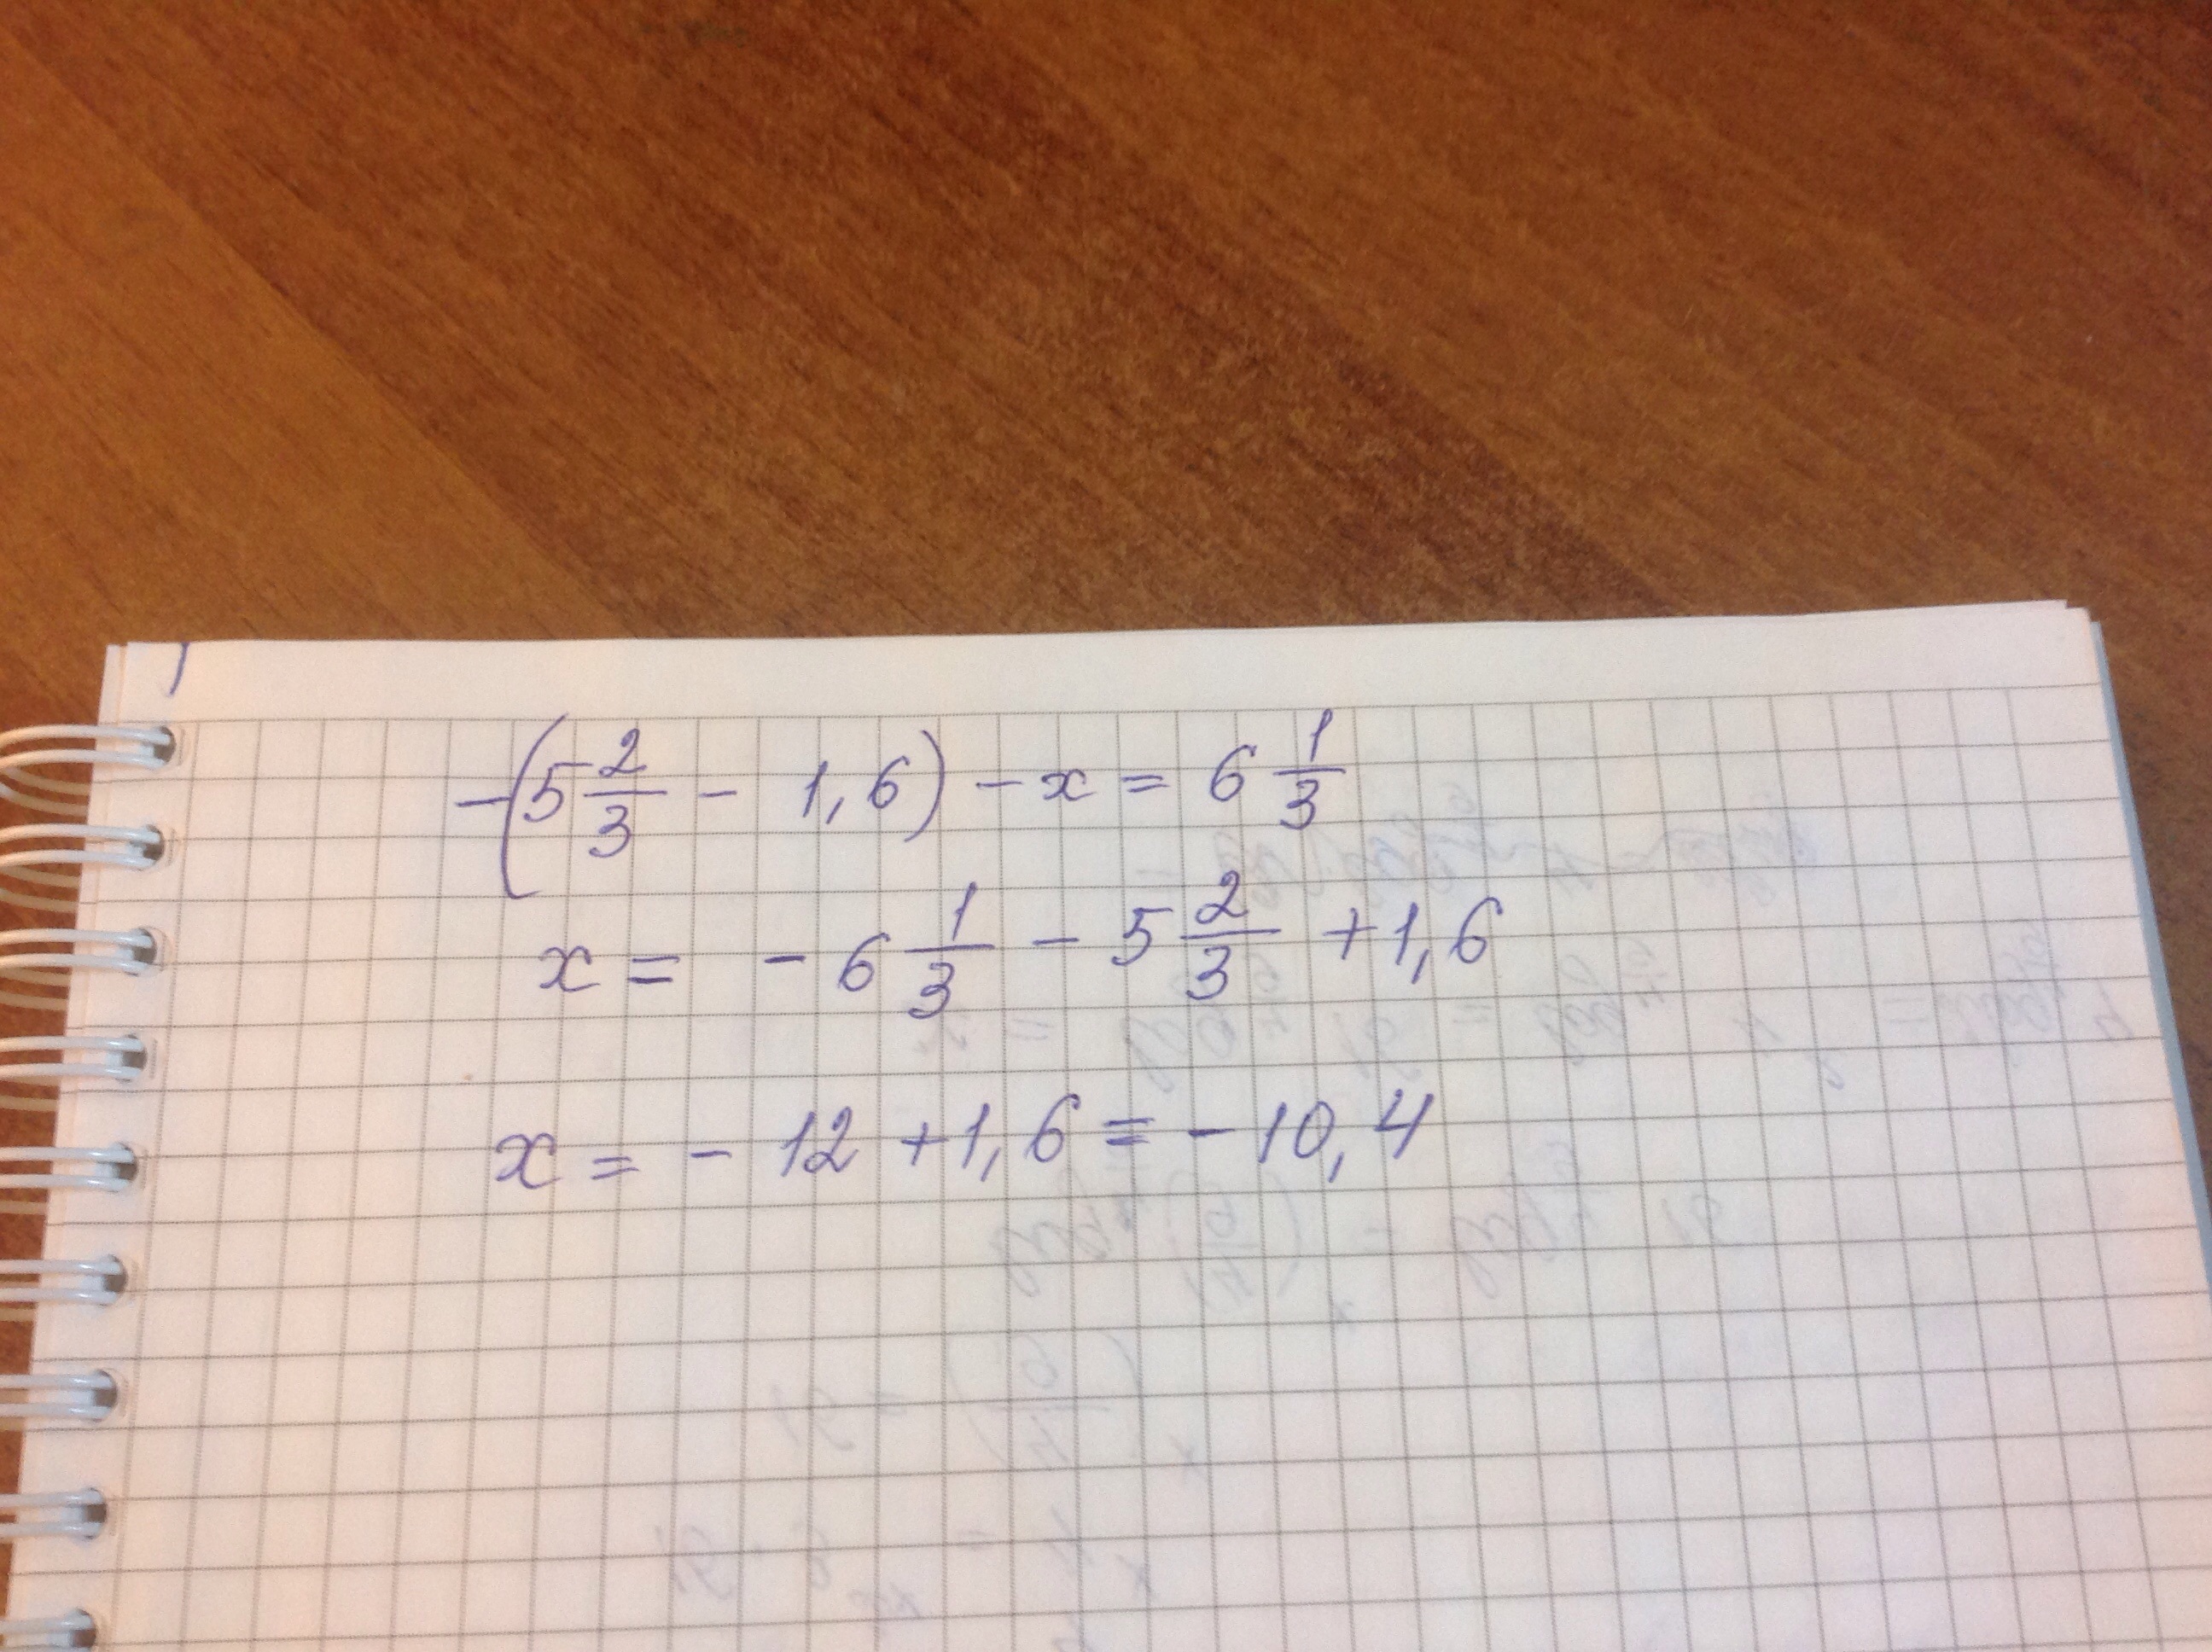 -(5 2/3 - 1,6) - x = 6 1/3
x = - 6 1/3 - 5 2/3 + 1,6
x = - 12 + 1,6 = - 10,4